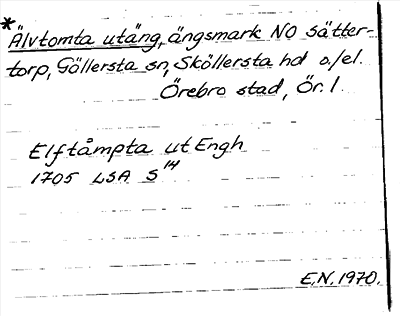 *Älvtomta utäng, ängsmark NO Sätter-
torp, Gällersta sn, Sköllersta hd o./el.
Örebro stad, Ör. l.
Elftåmpta ut Engh
1705 LSA S 14
E.N. 1970.